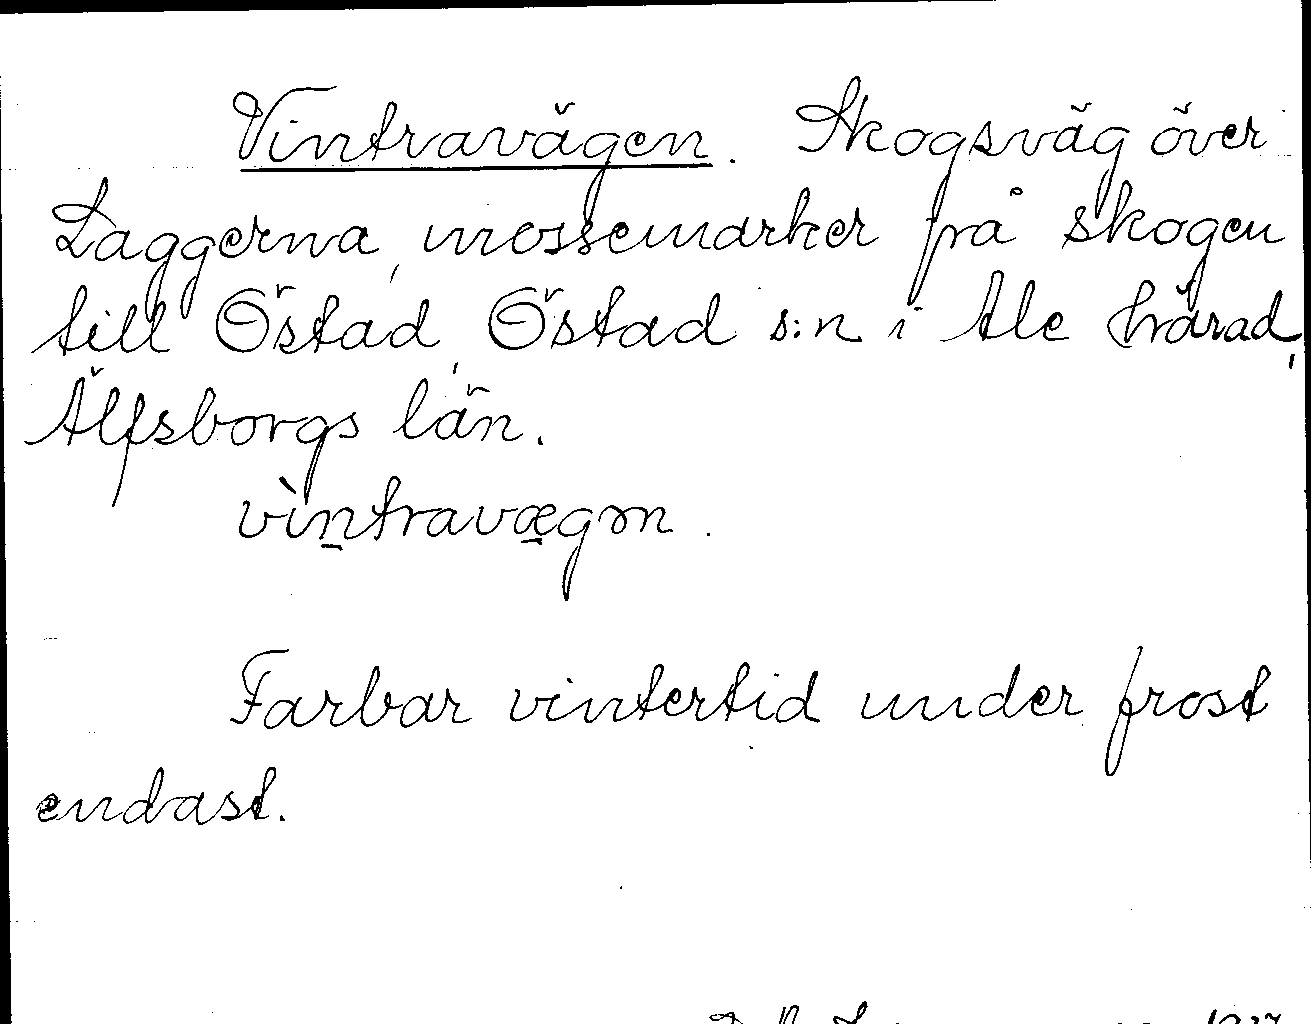 Vintravägen. Skogsväg över
Laggerna, mossemarker på skogen
till Östad, Östad s:n i Ale härad,
Älfsborgs län.
vìntravægən.
Farbar vintertid under frost
endast.